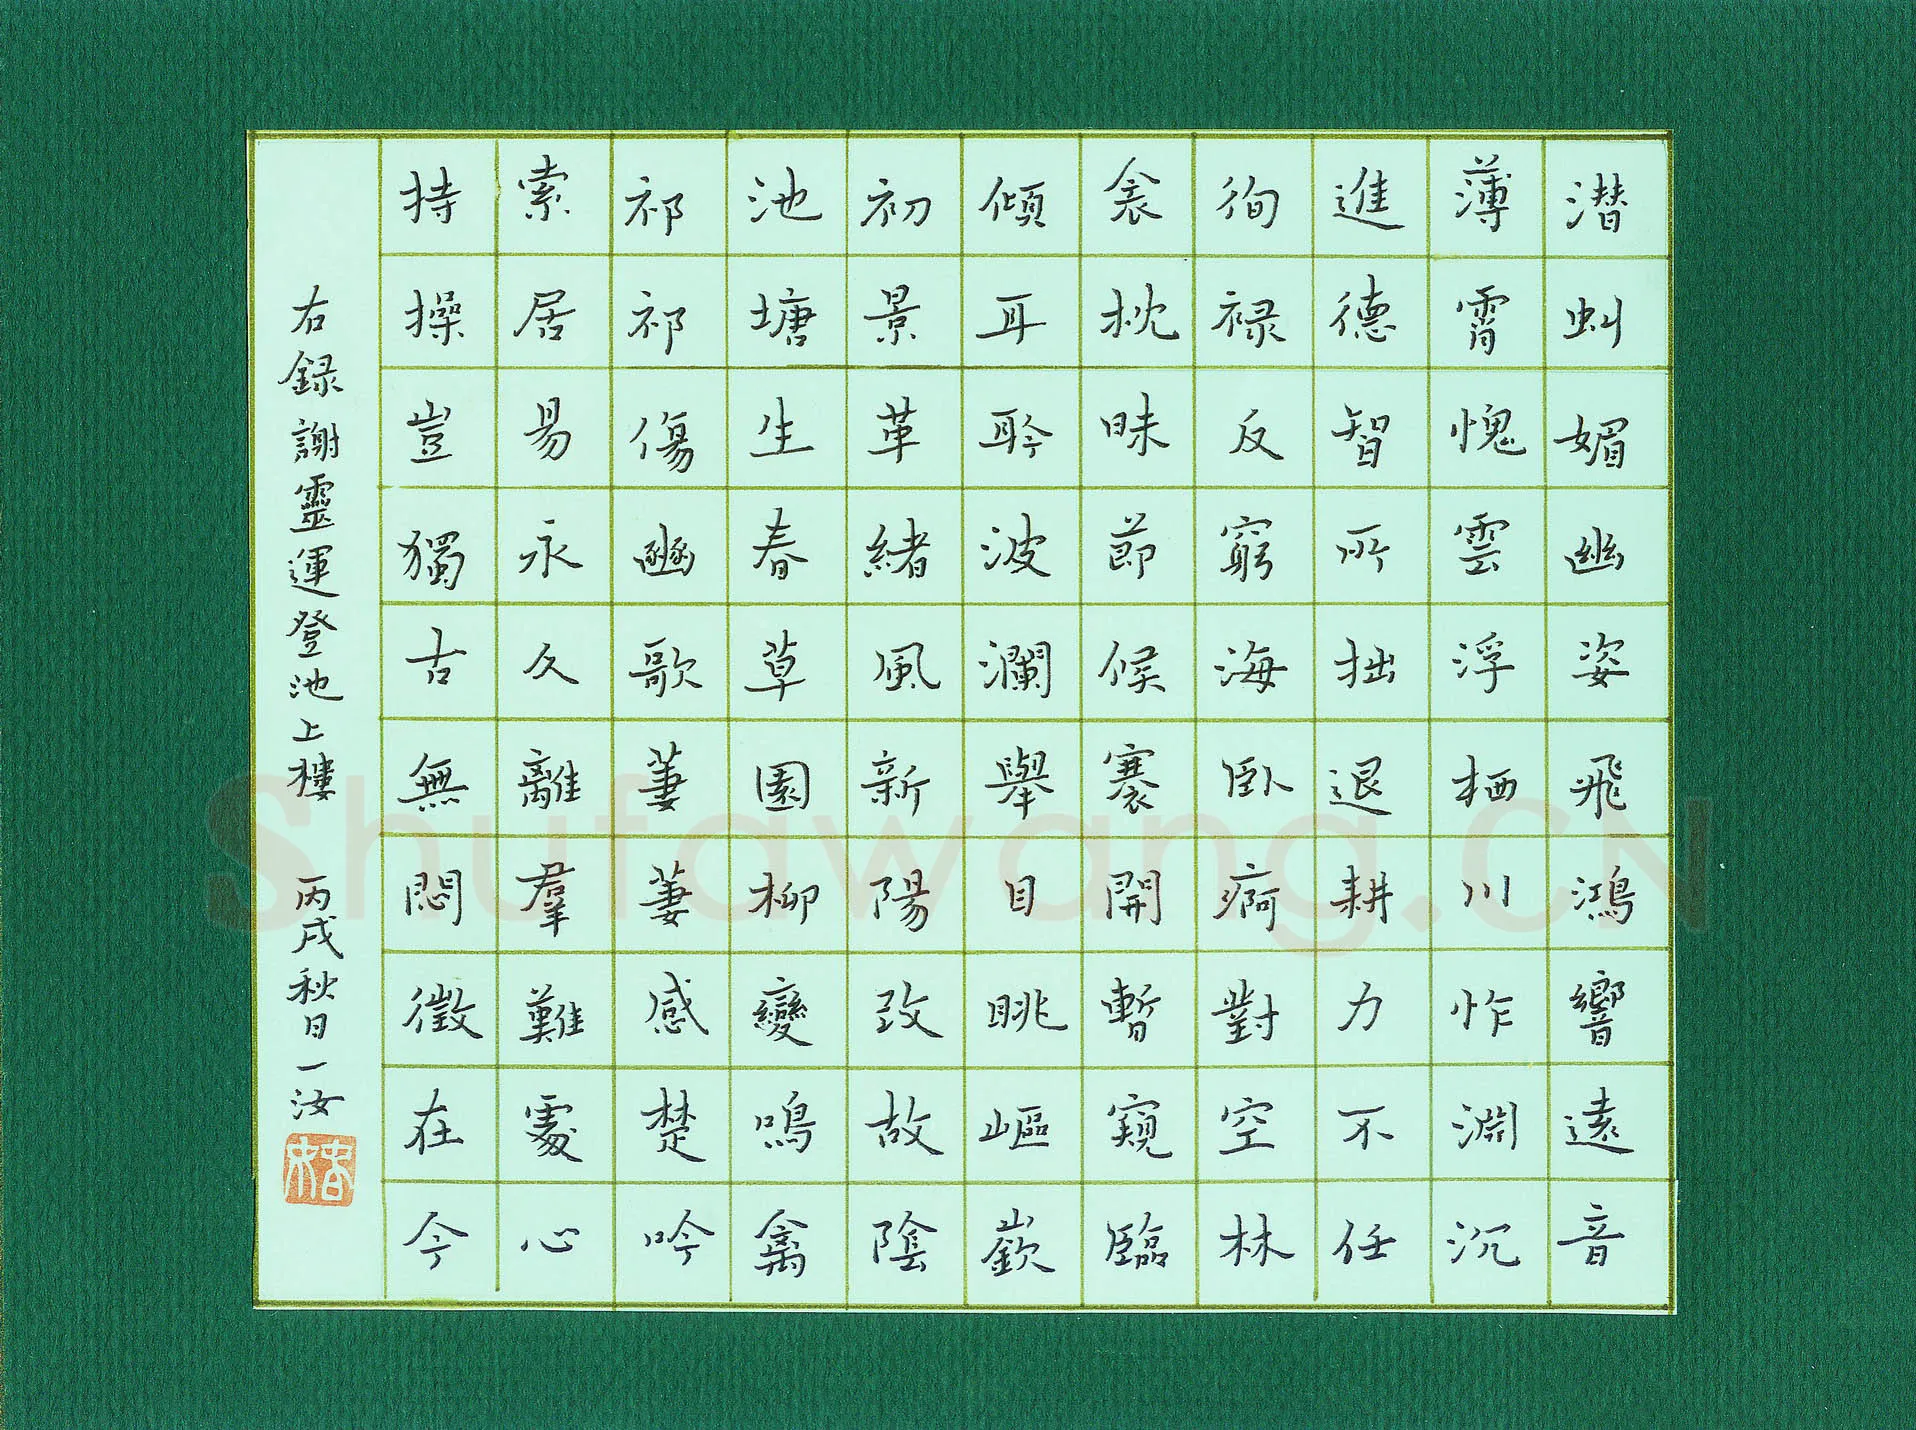 潜虯媚幽姿飛鴻響遠音
薄霄愧雲浮栖川怍淵沉
進德智所拙退耕力不任
徇禄反窮海卧痾對空林
衾枕昧節候褰開暫窺臨
傾耳聆波瀾舉目眺嶇嶔
初景革緒風新陽改故陰
池塘生春草園柳變鳴禽
祁祁傷豳歌萋萋感楚吟
索居易永久離羣難處心
持操豈獨古無悶徵在今
右録謝靈運登池上樓 丙戌秋日一汝
Shufawang.CN